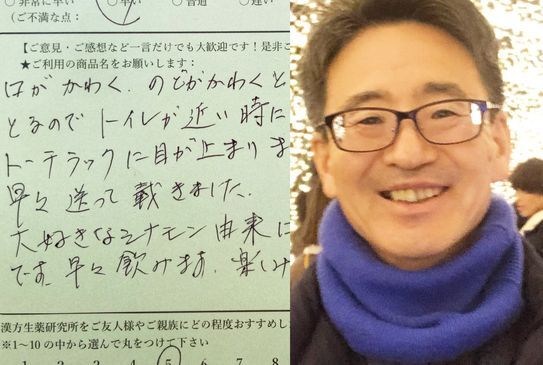 ○非常に早い ○早い ○普通 ○遅い
（ご不満な点：
【ご意見・ご感想など一言だけでも大歓迎です！是非ご
★ご利用の商品名をお願いします：
口がかわく、のどがかわくと
とるので トイレが近い時に
トーチラックに目が止まりま
早々送って戴きました。
大好きなシナモン由来に
です。早々飲みます。楽しみ
漢方生薬研究所をご友人様やご親族にどの程度おすすめし
※1～10 の中から選んで丸をつけて下さい
1 2 3 4 5 6 7 8